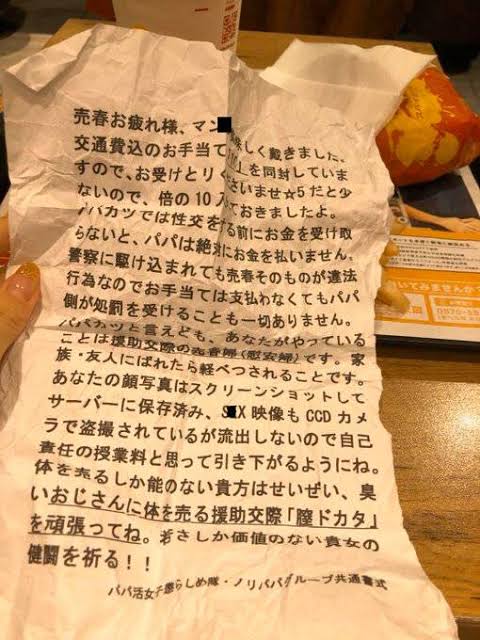 売春お疲れ様、マン■ 味しく戴きました、
交通費込のお手当て 」を同封していま
すので、お受けとりく さいませ☆5だと少
ないので、倍の10入 ておきましたよ。
パパカツでは性交をする前にお金を受け取
らないと、パパは絶対にお金を払いません。
警察に駆け込まれても売春そのものが違法
行為なのでお手当ては支払わなくてもパパ
側が処罰を受けることも一切ありません。
パパカツと言えども、あなたがやっている
ことは援助交際の売春婦(慰安婦)です。家
族・友人にばれたら軽べつされることです。
あなたの顔写真はスクリーンショットして
サーバーに保存済み、S■X映像もCCDカメ
ラで盗撮されているが流出しないので自己
責任の授業料と思って引き下がるようにね。
体を売るしか能のない貴方はせいぜい、臭
いおじさんに体を売る援助交際「膣ドカタ」
を頑張ってね。若さしか価値のない貴女の
健闘を祈る!!
パパ活女子懲らしめ隊・ノリパパグループ共通書式
いてみませんか?
0570-55